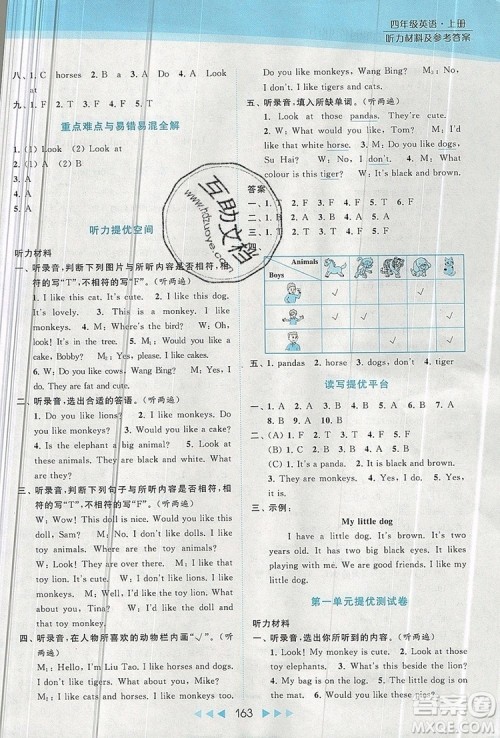 四年级英语·上册
听力材料及参考答案
八、1. C horses 2. A 3. A 4. C Look
at
九、1. F 2. F 3. T 4. T
重点难点与易错易混全解
1. (1) Look (2) Look at
2. (1) A (2) B
3. C
4. A
听力提优空间
听力材料
一、听录音,判断下列图片与所听内容是否相符,相
符的写"T",不相符的写"F"。(听两遍)
1. I like this cat. It's cute. 2. I like
monkeys. 3. Look at these horses. They're
cute. 4. M: Where's the bird? W: Look,
it's in the tree. 5. M: Would you like a
cake, Bobby? M: Yes, please. 6. W:
Do you like cows, Wang Bing? M: Yes, I
do. They are fat and cute.
二、听录音,选出合适的答语。(听两遍)
1. Do you like lions? 2. Look at my toy
dog. 3. Do you like monkeys or pandas?
4. Is the elephant a big animal? 5. Look at
these pandas. They are black and white.
三、听录音,判断下列句子与所听内容是否相符,相
符的写"T",不相符的写"F"。(听两遍)
W: Wow! This doll is nice. Would you like
this doll, Sam? M: No. I don't like
dolls. I like toy animals. W: Look at the
toy animals over there. They're nice. Would
you like the toy lion? M: No. I like the
toy monkey. W: OK. We'll take the toy
monkey.
四、听录音,在人物所喜欢的动物栏内画"√"。(听
两遍)
M₁: Hello, I'm Liu Tao. I like dogs. I
like monkeys. W: Do you like horses,
Do you like monkeys, Wang Bing? M₂: No,
I don't. I like tigers and cats.
五、听录音,填入所缺单词。(听两遍)
1. Look at those pandas. They are fat.
2. I have a dog. It's cute. 3. Look at the
horse. It can run. 4. W: Do you like dogs,
Su Hai? W: Yes, I do. 5. M: Do you
like monkeys? M: No, I don't. I like tigers.
答案
一、1. T 2. F 3. T 4. F 5. T 6. F
二、1. A 2. B 3. C 4. C 5. B
三、1. F 2. T 3. F 4. F 5. T
四、
Animals
Boys
√
√ √
√ √
五、1. pandas 2. dog 3. horse 4. dogs, do
5. don't tigers
读写提优平台
一、1. A 2. B 3. C 4. B 5. C 6. A 7. B
8. A 9. B 10. B
二、(A) 1. F 2. F 3. T 4. F 5. F
(B) 1. C 2. A 3. B 4. B 5. A
三、示例:
My little dog
I have a little dog. It's brown. It's
very cute. It has two big eyes. It likes
playing with me. I like my little brown dog.
第一单元提优测试卷
听力材料
一、听录音,选出你所听到的内容。(听两遍)
1. I like bears. 2. Look at those
toy elephants. 3. This is my cousin.
4. We don't like those monkeys. 5. The
163
互助文档
www.hdzuoye.com
答案圈